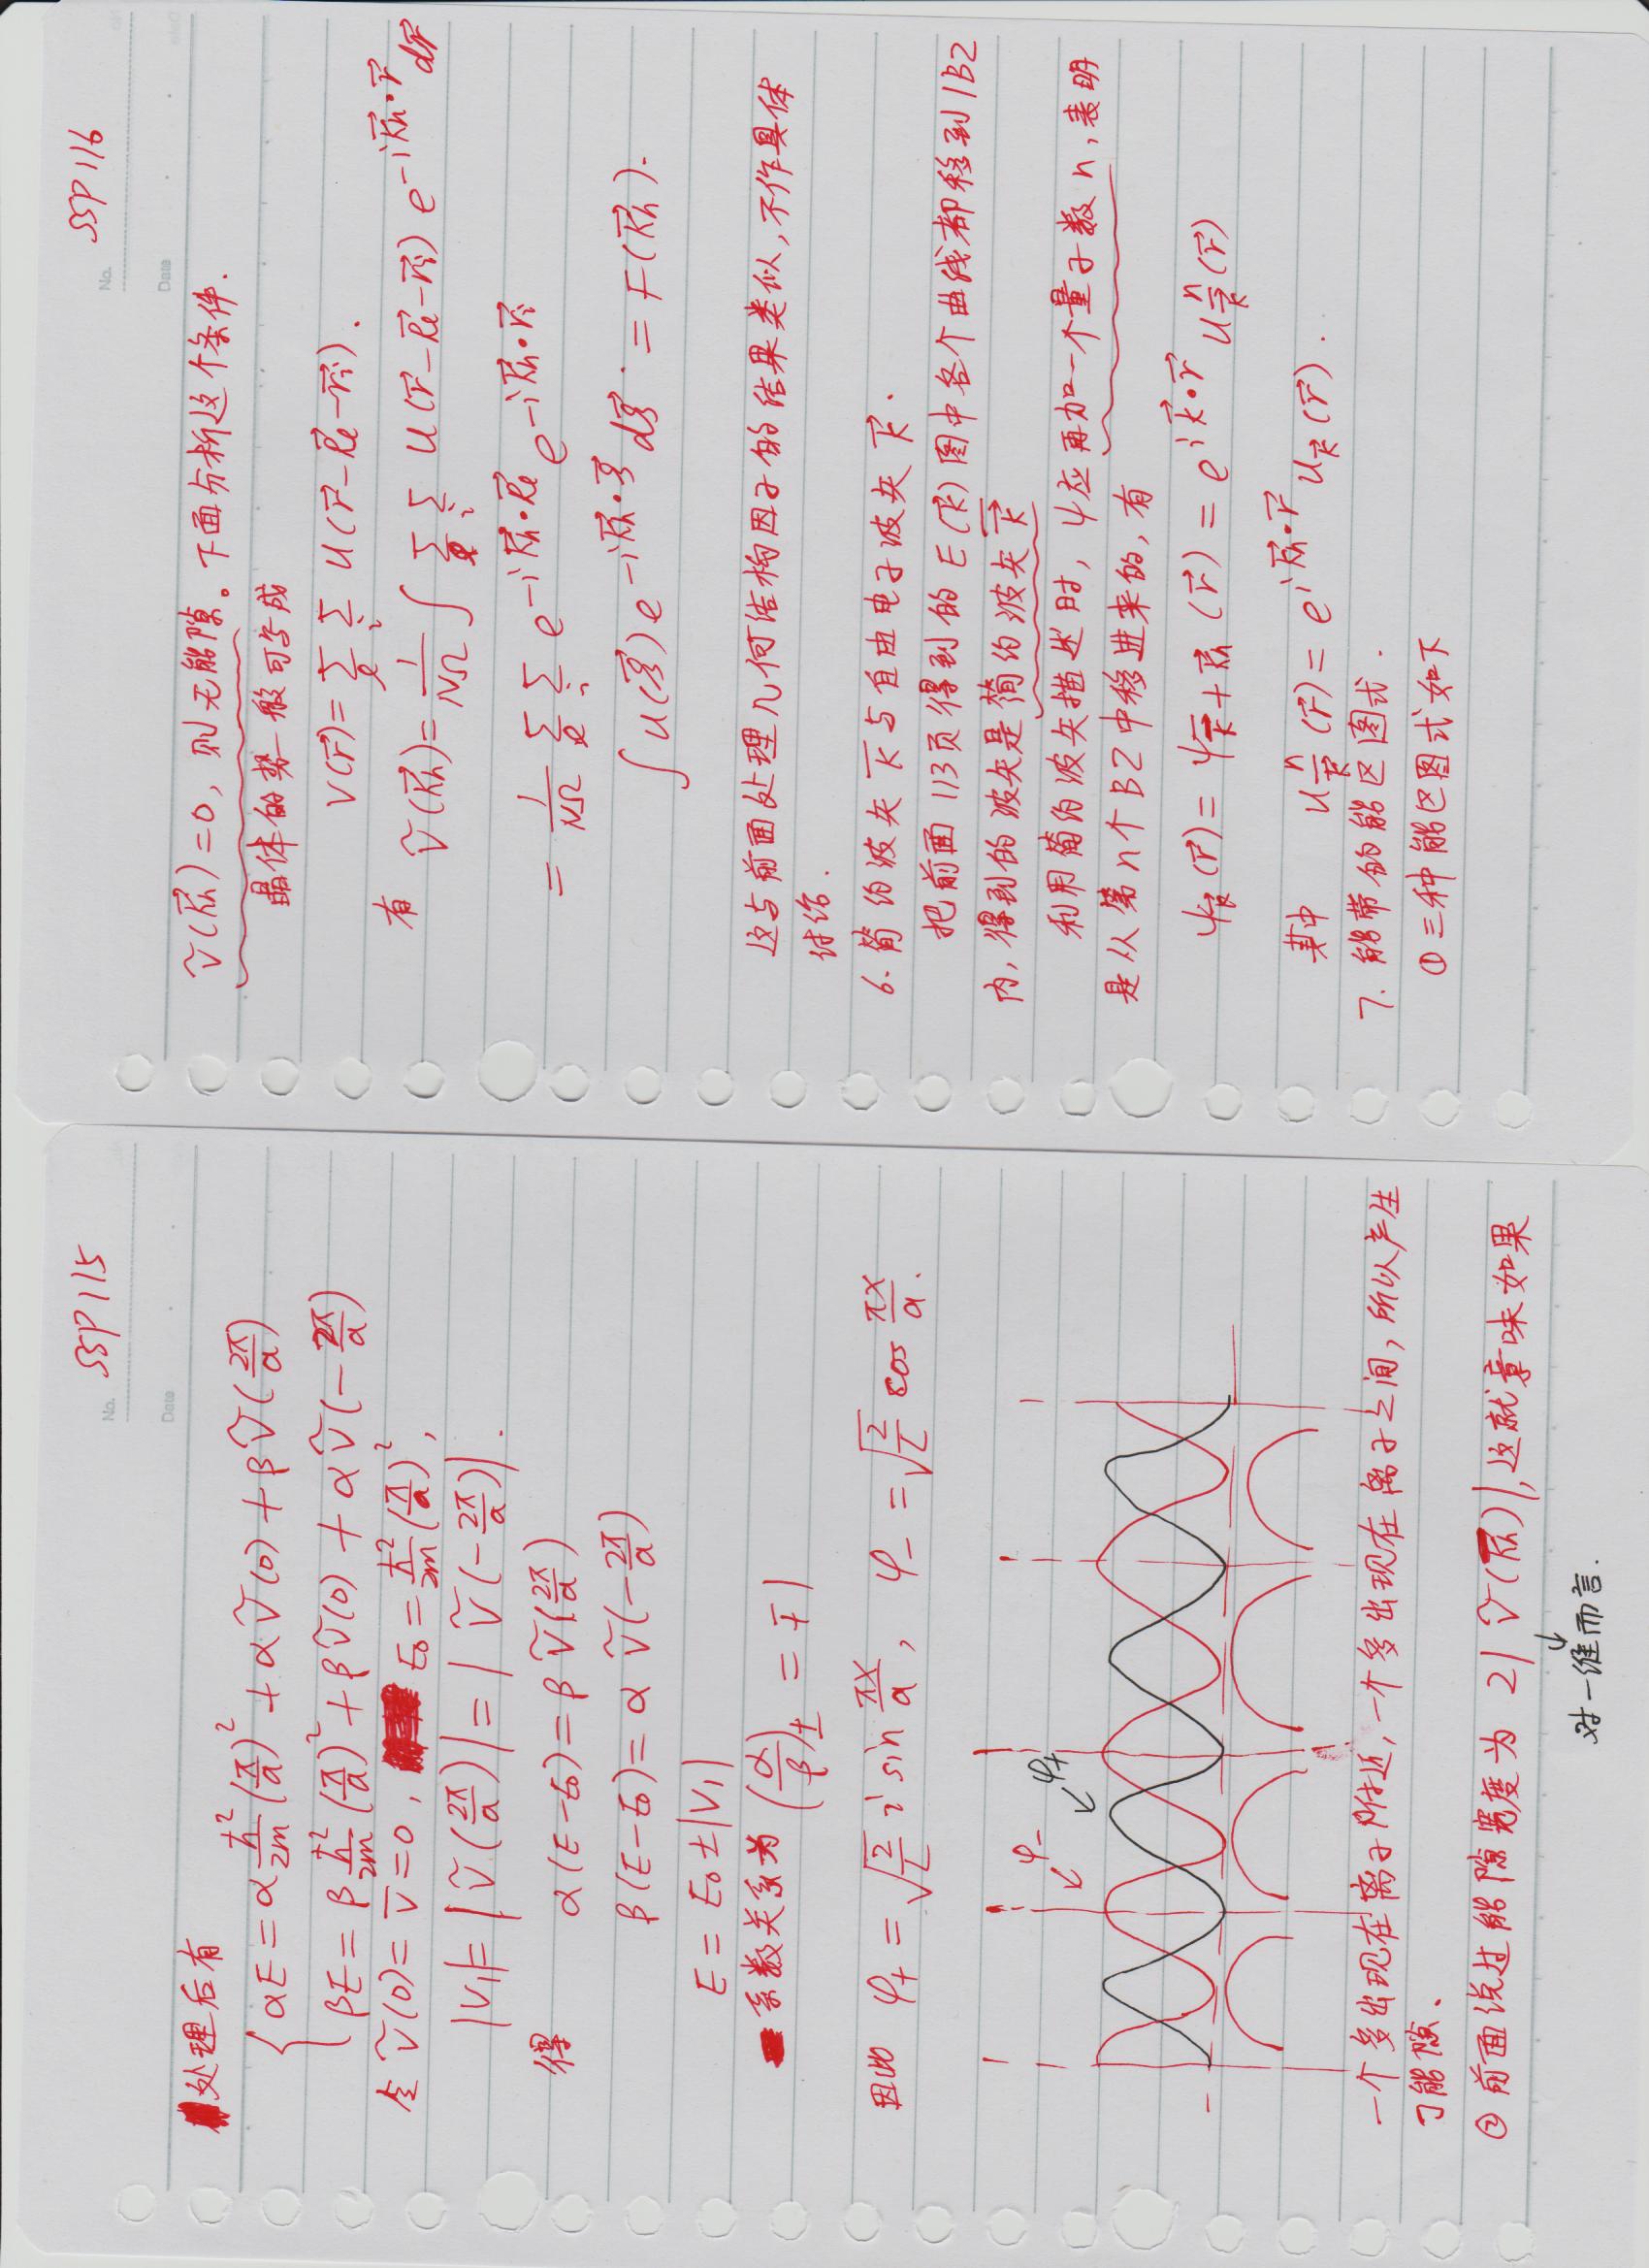 SSP 115
No.
Date
处理后有
αE = α ħ²/2m (π/a)² + α Ṽ(0) + β Ṽ(2π/a)
βE = β ħ²/2m (π/a)² + β Ṽ(0) + α Ṽ(-2π/a)
令 Ṽ(0) = V̄ = 0, E₀ = ħ²/2m (π/a)²,
|V₁| = |Ṽ(2π/a)| = |Ṽ(-2π/a)|.
得 α(E-E₀) = β Ṽ(2π/a)
β(E-E₀) = α Ṽ(-2π/a)
E = E₀ ± |V₁|
系数关系为 (α/β)± = ∓1
因此 φ₊ = √(2/L) i sin πx/a, φ₋ = √(2/L) cos πx/a.
φ₋
φ₊
一个多出现在离子附近,一个多出现在离子之间,所以产生
了能隙.
② 前面说过能隙宽度为 2|Ṽ(K⃗h)|,这就意味如果
对一维而言.
SSP 116
No.
Date
Ṽ(K⃗h) = 0, 则无能隙。下面分析这个条件.
晶体的势一般可写成
V(r⃗) = Σl Σi u(r⃗-R⃗l-r⃗i).
有 Ṽ(K⃗h) = 1/NΩ ∫ Σl Σi u(r⃗-R⃗l-r⃗i) e^(-iK⃗h·r⃗) dr⃗
= 1/NΩ Σl Σi e^(-iK⃗h·R⃗l) e^(-iK⃗h·r⃗i)
∫ u(ξ⃗) e^(-iK⃗h·ξ⃗) dξ⃗ = F(K⃗h).
这与前面处理几何结构因子的结果类似,不作具体
讨论.
6. 简约波矢 k̄ 与自由电子波矢 k⃗.
把前面 113页得到的 E(k⃗) 图中各个曲线都移到 1BZ
内,得到的波矢是简约波矢 k̄⃗
利用简约波矢描述时, ψ应再加一个量子数 n, 表明
是从第n个BZ中移进来的,有
ψk⃗(r⃗) = ψk̄⃗+K⃗h(r⃗) = e^(ik̄⃗·r⃗) uⁿk̄⃗(r⃗)
其中 uⁿk̄⃗(r⃗) = e^(iK⃗h·r⃗) uk⃗(r⃗).
7. 能带的能区图式.
① 三种能区图式如下